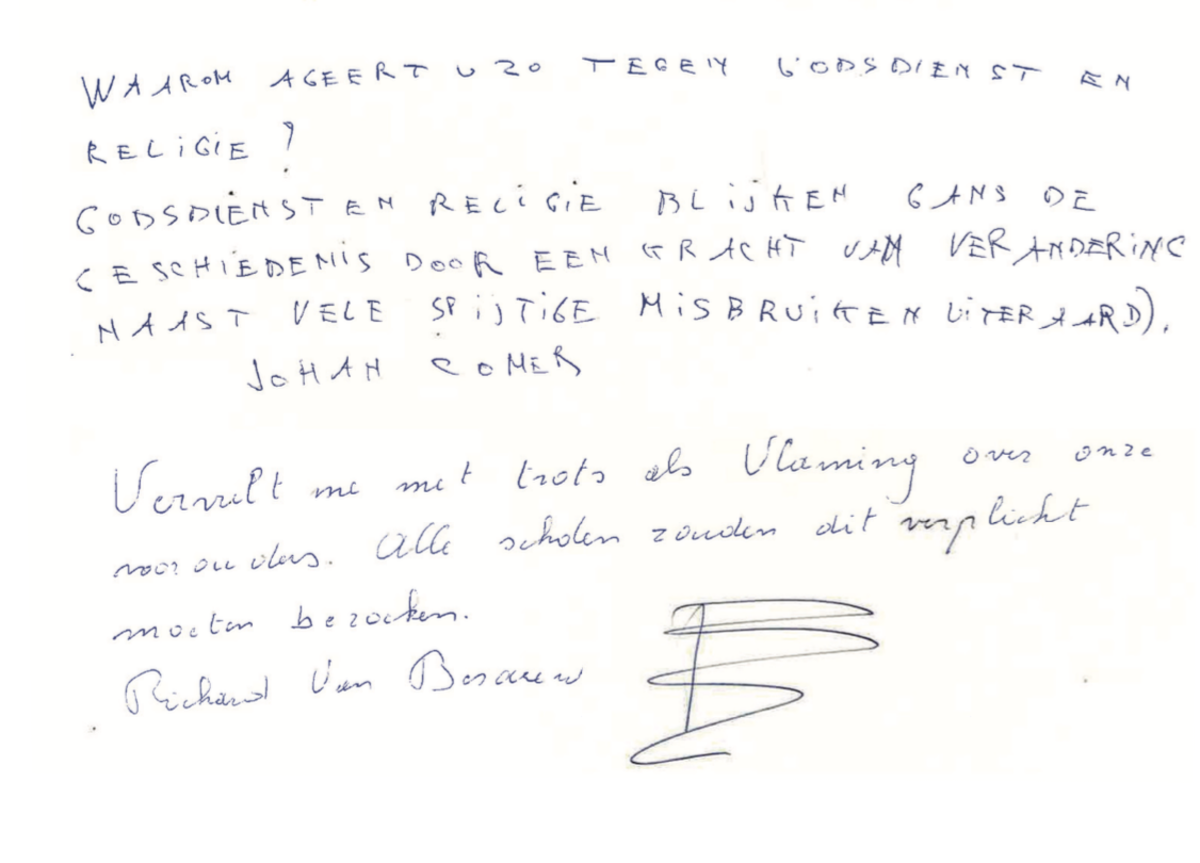 WAAROM AGEERT U ZO TEGEN GODSDIENST EN
RELIGIE?
GODSDIENST EN RELIGIE BLIJKEN GANS DE
GESCHIEDENIS DOOR EEN KRACHT VAN VERANDERING
NAAST VELE SPIJTIGE MISBRUIKEN UITERAARD).
JOHAN COMER
Vervult me met trots als Vlaming over onze
voorouders. Alle scholen zouden dit verplicht
moeten bezoeken.
Richard Van